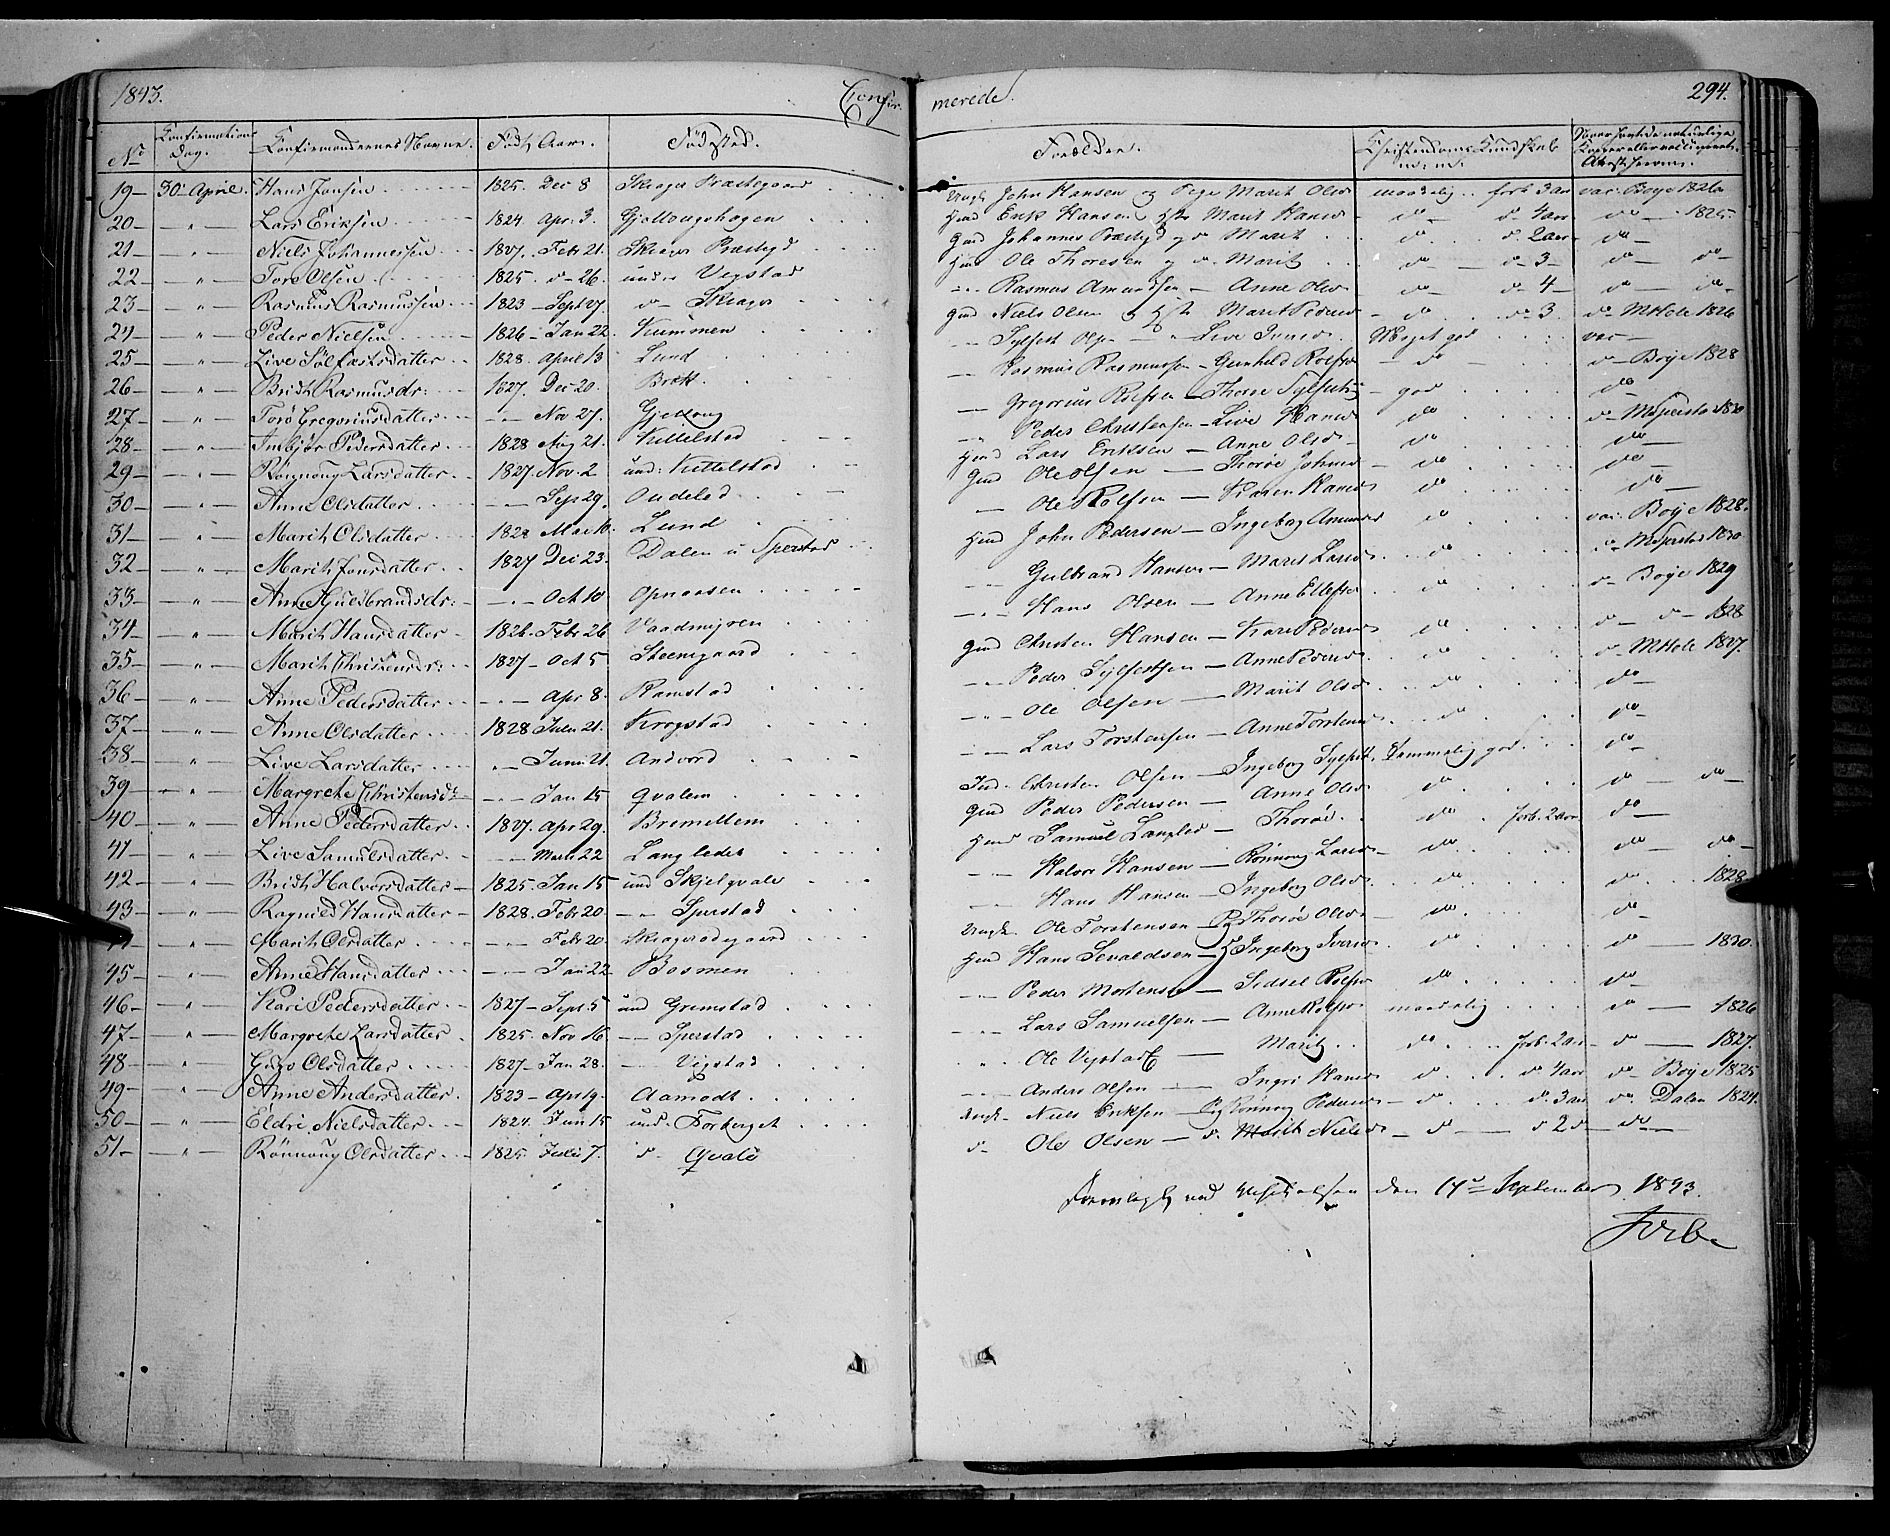 1843. Confir- merede. 294.
No Confirmations Dag. Confirmandernes Navne. Født Aar. Fødsted. Forældre. Christendoms Kundskab m: m:
19 — 30 April. Hans Jonsen 1825. Dec 8 Skiager Præstegaard Ungk. John Hansen og Pige Marit Olsd maadelig forb. 3 aar vac: Boye 1826
20 — " — Lars Eriksen 1824 Apr. 3. Gjellongshagen Hmd Erik Hansen Marit Hansd do d. 4 aar do — 1825
21 — " — Niels Johannessen 1827. Febr 21. Skiager Præstgd Gmd Johannes Præstgd Marit do d. 2 aar do
22 — " — Tore Olsen 1825. d 26. under Vigstad Hmd Ole Thoresen og Marit do d. 3 do do
23 — " — Rasmus Rasmussen 1823 — Sept 27. d Skiager Rasmus Amundsen — Anne Olsd do d. 4 do do
24 — " — Peder Nielsen 1826 — Jan 22. Kummen Gmd Niels Olsen Marit Pedersd do d. 3 d. M Hole 1826
25 — " — Live Sølfæstsdatter 1828. April 13 Lund Sylfest Olsen Live Meget god vac
26 — " — Brith Rasmusdr: 1827. Dec 20. Brek Rasmus Rasmussen — Gunhild Rolfsd do d Boye 1828
27 — " — Torø Gregoriusdatter — Nov 27. Gjellong — Gregorius Rolfsen — Thorøe god do
28 — " — Imbjør Pedersdatter 1828 Aug 21. Kittelstad Peder Christensen — Live Hansd do d 1830
29 — " — Rønnoug Larsdatter 1827. Nov. 2 und: Kittelstad Hmd Lars Eriksen — Anne Olsd do do
30 — " — Anne Olsdatter — Sept 29. Gmd Ole Olsen — Thorøe Johnsd do do
31 — " — Marith Olsdatter 1828 Mai 10. Lund — Ole Rolfsen — Karen Hansd do do
32 — " — Marith Jonsdatter 1827 Dec 23. Dalen u Sperstad Hmd John Pedersen — Ingeborg Amundsd do vac: Boye 1828.
33 — " — Anne Gulbrandsdr: — Oct 10 Opnaasen Gulbrand Hansen — Marit Larsd do d 1830
34 — " — Marith Hansdatter 1826. Febr 26 Hans Olsen — Anne Ellefsd do d Boye 1829
35 — " — Marith Christensdr: 1827 — Oct 5 Steensgaard Gmd Christen Hansen — Kari Pedersd do d d 1828
36 — " — Anne Pedersdatter — Apr 8. Ramstad Peder Sylfestsen — Anne Pedersd do d M Hole 1827.
37 — " — Anne Olsdatter 1828 21. Krogstad Ole Olsen — Marit Olsd do do
38 — " — Live Larsdatter — Juni 21. Andvord Lars Torstensen — Anne Torstensd do do
39 — " — Margrethe Christensd: — Jan 15 Qvalem Christen Olsen — Ingeborg Temmelig god do
40 — " — Anne Pedersdatter 1827. Apr 29. Gmd Peder Pedersen — Anne Olsd do do do
41 — " — Live Samulsdatter — Marts 22 Langledet Hmd Samuel Langled — Thorøe do forb. 2 aar do
42 — " — Brith Halvorsdatter — 1825 — Jan 15 und Skjelqvale Halvor Hansen — Rønnoug Larsd do do do
43 — " — Ragnild Hansdatter — 1828. Febr 20. — Sperstad Hans Hansen — Ingeborg Olsd do do 1828
— " — Marith Olsdatter — Febr 20. Ungk. Ole Torstensen — Pg Thorøe Olsd do do
45 — " — Anne Hansdatter — Jan 22. Bosmen Hmd Hans Sevaldsen — Ingeborg Iversd do do — 1830.
46 — " — Kari Pedersdatter 1827 — Sept 5 und Grimstad Peder Mortensen — Sidsel Rolfsd do do
47 — " — Margrethe Larsdatter 1825. Nov 16 — Sperstad Lars Samuelsen — Anne Rolfsd maadelig do — 1826
48 — " — Guro Olsdatter 1827 — Jan 28. — Vigstad Ole Vigstad — Marit do forb. 2 aar do — 1827.
49 — " — Anne Andersdatter. 1823 — Apr 19. Aamodt Anders Olsen — Ingri Hansd do d 4 aar do Boye 1825
50 — " — Eldri. Nielsdatter 1824. Jun 15 und. Forberget Ungk. Niels Eriksen — Pg Rønnog Pedersd do d. 3 aar do Dalen 1824.
51 — " — Rønnoug Olsdatter 1825. 7. d. Qvale d. Ole Olsen — d. Marit Nielsd — d — d 2 d — do
Fremlagt ved Visitatsen den 14de September 1843.